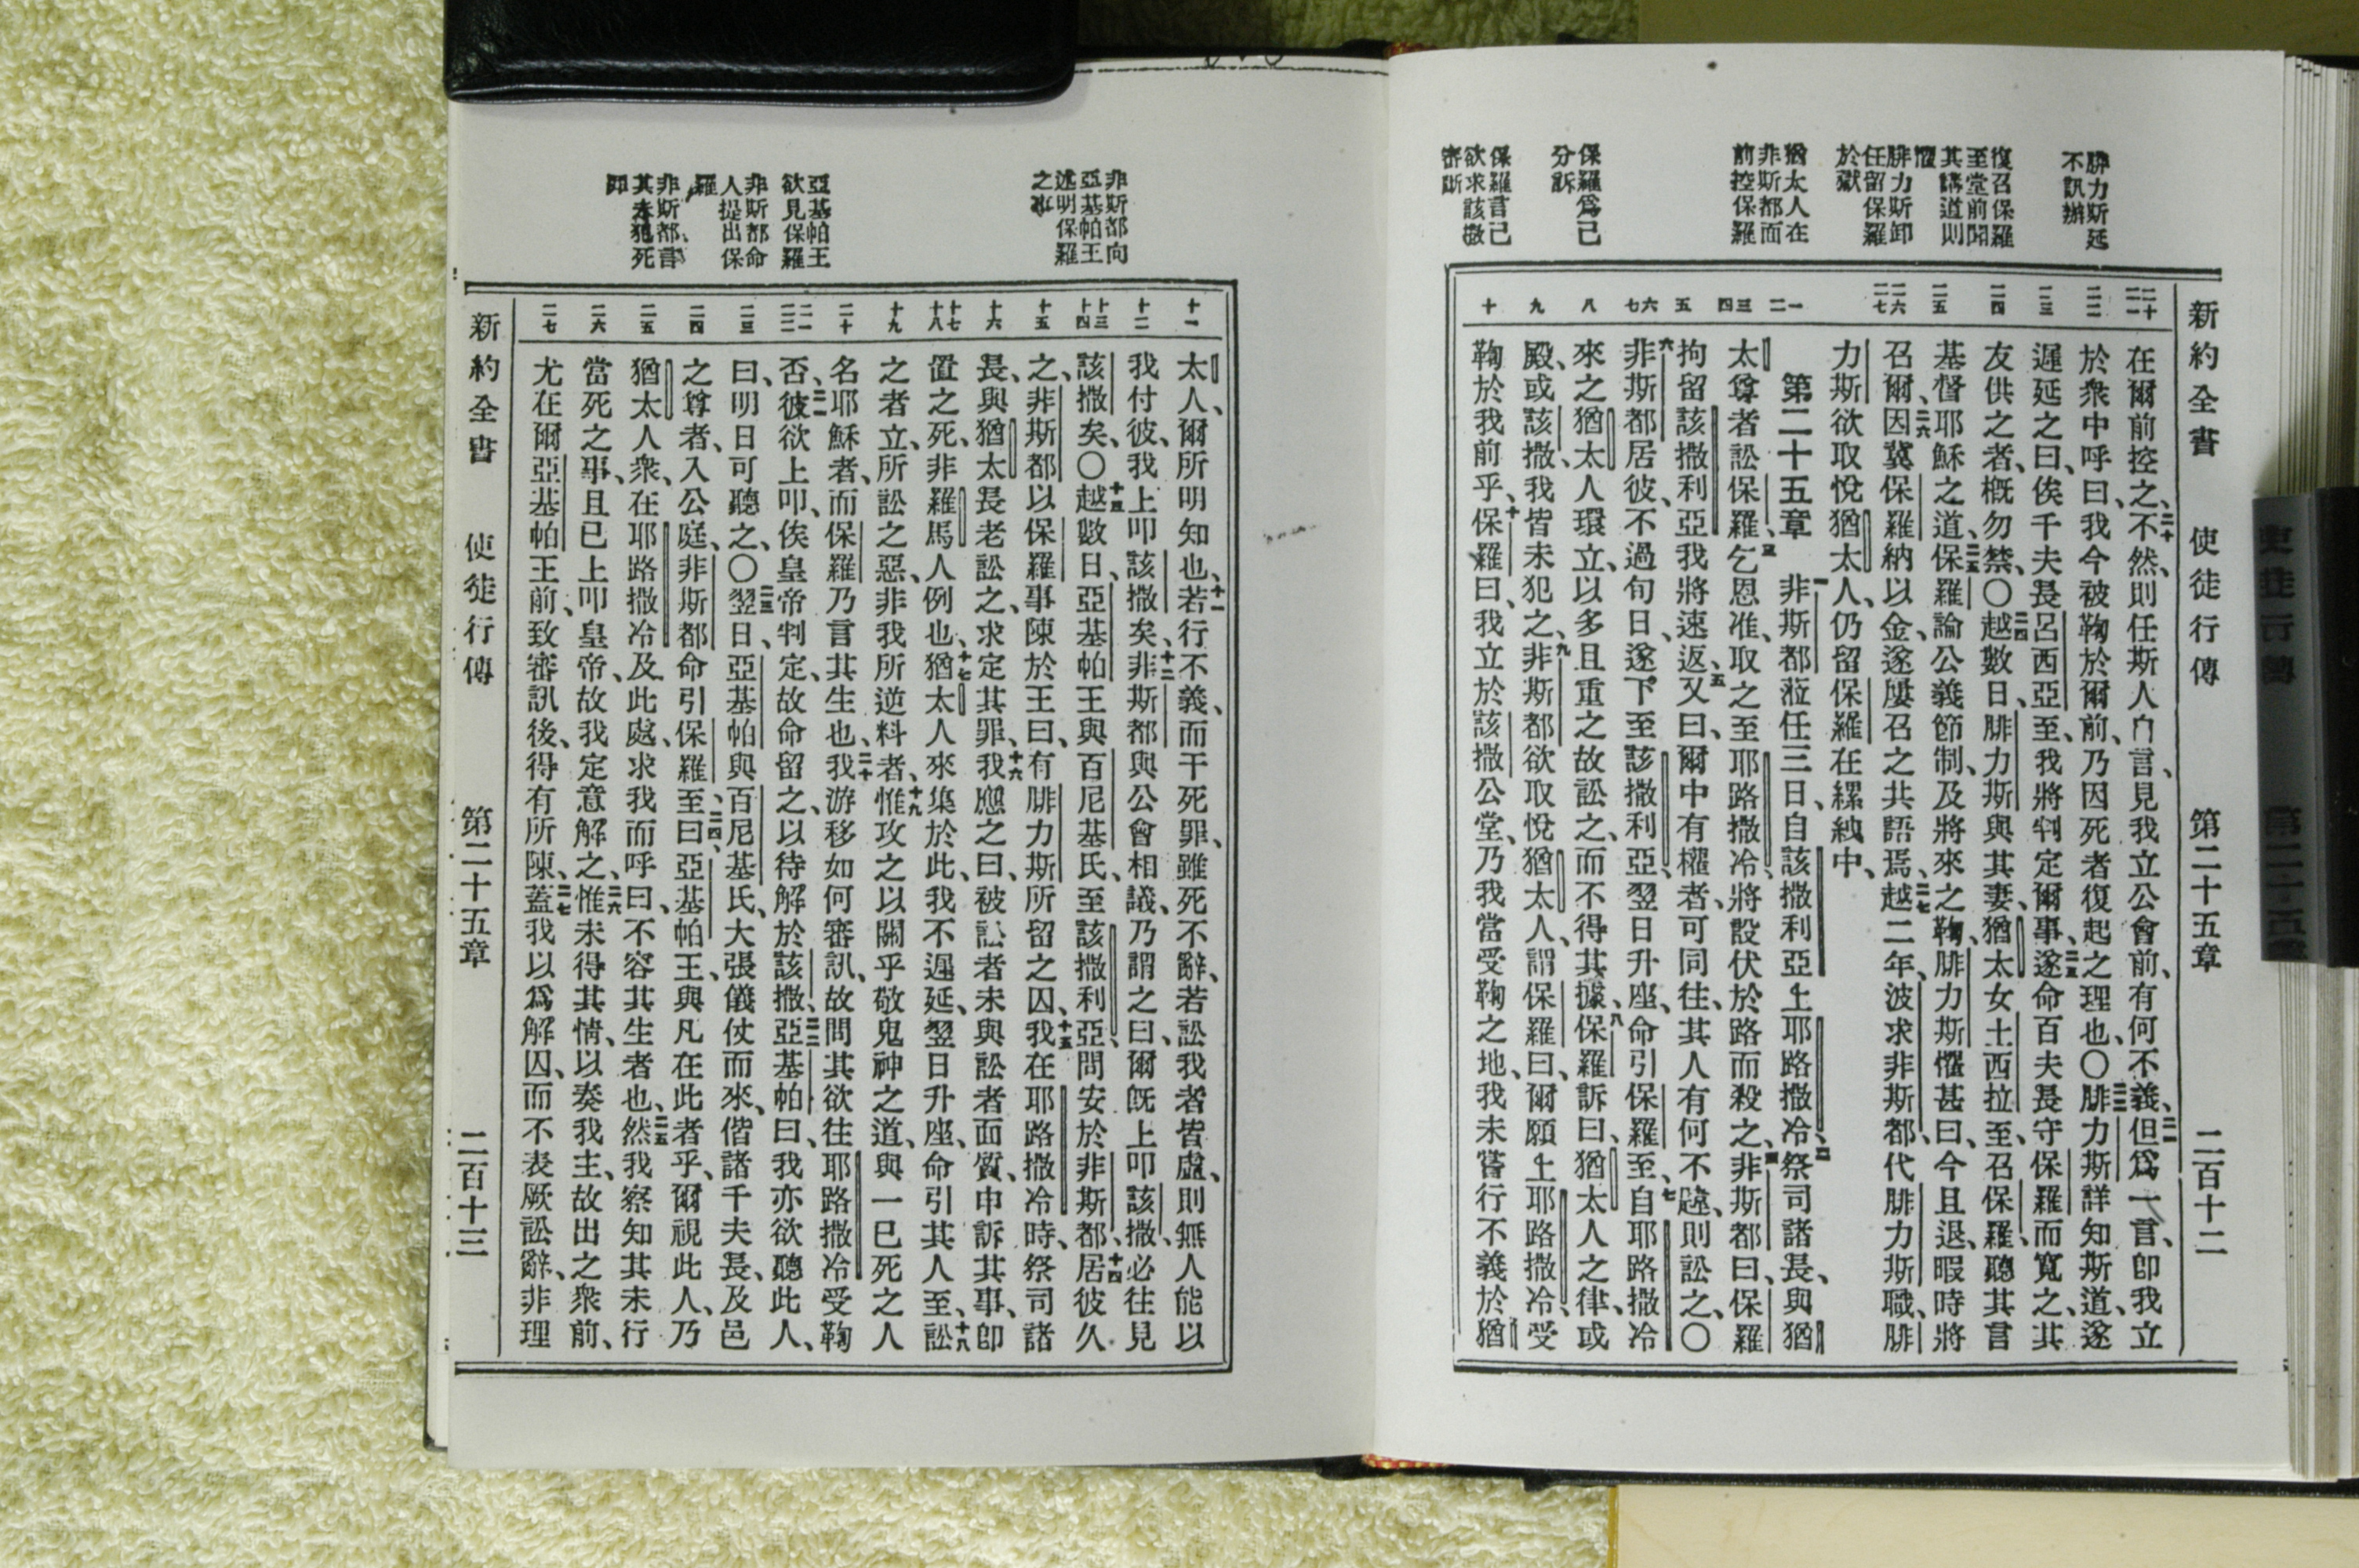 新約全書 使徒行傳 第二十五章 二百十二
腓力斯延
不訊辦
復召保羅
至堂前聞
其講道則
懼
腓力斯卸
任留保羅
於獄
猶太人在
非斯都面
前控保羅
保羅爲己
分訴
保羅言己
欲求該撒
審斷
二十 二一 二二 二三 二四 二五 二六 二七 一 二 三 四 五 六 七 八 九 十
在爾前控之、二十不然、則任斯人自言、見我立公會前、有何不義、二一但爲一言、卽我立
於衆中呼曰、我今被鞫於爾前、乃因死者復起之理也、〇二二腓力斯詳知斯道、遂
遲延之曰、俟千夫長呂西亞至、我將判定爾事、二三遂命百夫長守保羅而寬之、其
友供之者、概勿禁、〇二四越數日、腓力斯與其妻、猶太女土西拉至、召保羅、聽其言
基督耶穌之道、二五保羅論公義節制、及將來之鞫、腓力斯懼甚曰、今且退、暇時將
召爾、二六因冀保羅納以金、遂屢召之共語焉、二七越二年、波求非斯都、代腓力斯職、腓
力斯欲取悅猶太人、仍留保羅在縲絏中、
第二十五章 一非斯都蒞任三日、自該撒利亞上耶路撒冷、二祭司諸長、與猶
太尊者訟保羅、三乞恩准、取之至耶路撒冷、將設伏於路而殺之、四非斯都曰、保羅
拘留該撒利亞、我將速返、五又曰、爾中有權者、可同往、其人有何不韙、則訟之、〇
六非斯都居彼、不過旬日、遂下至該撒利亞、翌日升座、命引保羅至、七自耶路撒冷
來之猶太人環立、以多且重之故訟之、而不得其據、八保羅訴曰、猶太人之律、或
殿、或該撒、我皆未犯之、九非斯都欲取悅猶太人、謂保羅曰、爾願上耶路撒冷、受
鞫於我前乎、十保羅曰、我立於該撒公堂、乃我當受鞫之地、我未嘗行不義於猶
非斯都向
亞基帕王
述明保羅
之事
亞基帕王
欲見保羅
非斯都命
人提出保
羅
非斯都言
其未犯死
罪
十一 十二 十三 十四 十五 十六 十七 十八 十九 二十 二一 二二 二三 二四 二五 二六 二七
太人、爾所明知也、十一若行不義、而干死罪、雖死不辭、若訟我者皆虛、則無人能以
我付彼、我上叩該撒矣、十二非斯都與公會相議、乃謂之曰、爾既上叩該撒、必往見
該撒矣、〇十三越數日、亞基帕王與百尼基氏、至該撒利亞、問安於非斯都、十四居彼久
之、非斯都以保羅事陳於王曰、有腓力斯所留之囚、十五我在耶路撒冷時、祭司諸
長、與猶太長老訟之、求定其罪、十六我應之曰、被訟者未與訟者面質、申訴其事、卽
置之死、非羅馬人例也、十七猶太人來集於此、我不遲延、翌日升座、命引其人至、十八訟
之者立、所訟之惡、非我所逆料者、十九惟攻之以關乎敬鬼神之道、與一已死之人
名耶穌者、而保羅乃言其生也、二十我游移如何審訊、故問其欲往耶路撒冷受鞫
否、二一彼欲上叩、俟皇帝判定、故命留之、以待解於該撒、二二亞基帕曰、我亦欲聽此人、
曰、明日可聽之、〇二三翌日、亞基帕與百尼基氏、大張儀仗而來、偕諸千夫長、及邑
之尊者、入公庭、非斯都命引保羅至、二四曰、亞基帕王、與凡在此者乎、爾視此人、乃
猶太人衆、在耶路撒冷及此處、求我而呼曰、不容其生者也、二五然我察知其未行
當死之事、且已上叩皇帝、故我定意解之、二六惟未得其情、以奏我主、故出之衆前、
尤在爾亞基帕王前、致審訊後、得有所陳、二七蓋我以爲解囚、而不表厥訟辭、非理
新約全書 使徒行傳 第二十五章 二百十三